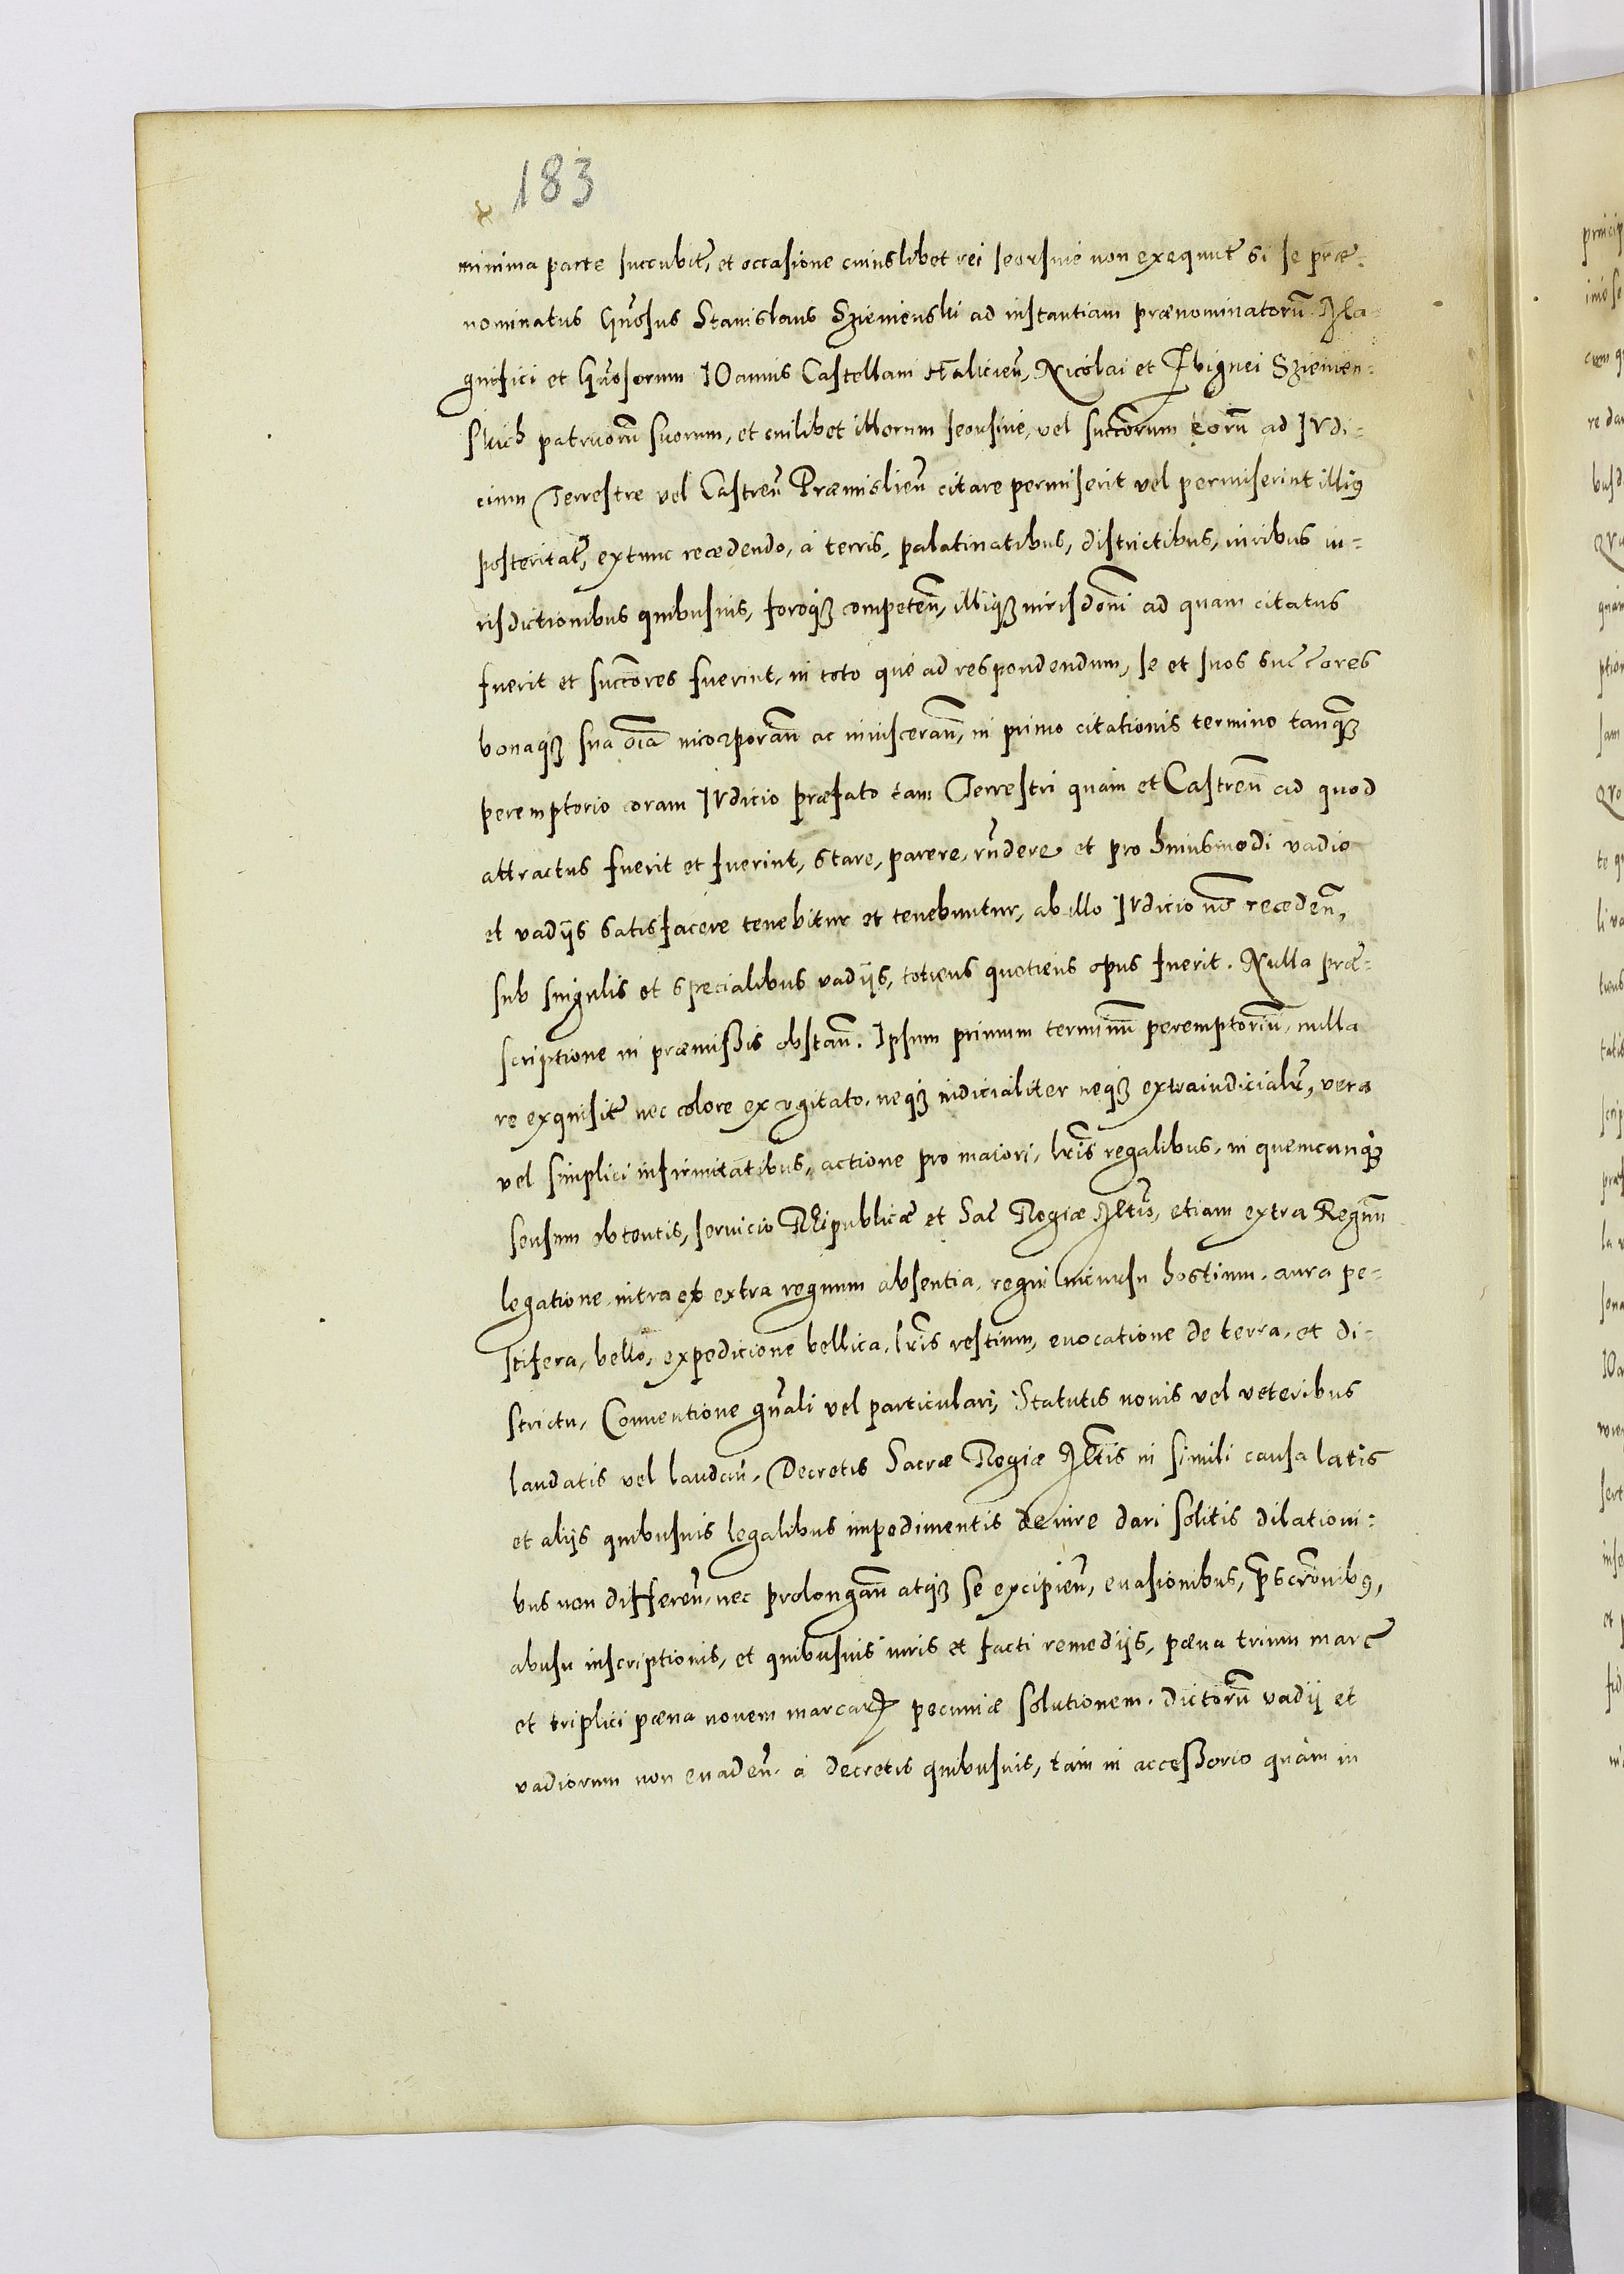 183
minima parte succubit, et occasione cuiuslibet rei seorsiue non exequut si se præ-
nominatus Gnosus Stanislaus Szienienski ad instantiam prænominatoru Ma-
gnifici et Gnosorum IOannis Castellani Halicien, Nicolai et Zbignei Szienien-
skich patruoru suorum, et cuilibet illorum seorsiue, vel succorum eoru ad IVdi-
cium Terrestre vel Castren Præmislien citare permiserit vel permiserint illius
posteritat, extunc recedendo, à terris, palatinatibus, districtibus, iuribus iu-
risdictionibus quibusuis, foroq3 competen, illiq3 iurisdoni ad quam citatus
fuerit et succores fuerint, in toto que ad respondendum, se et suos succores
bonaq3 sua oia incorporan ac inuisceran, in primo citationis termino tanq3
peremptorio coram IVdicio præfato tam Terrestri quam et Castren ad quod
attractus fuerit et fuerint, stare, parere, rndere et pro huiusmodi vadio
et vadijs satisfacere tenebitur et tenebuntur, ab illo IVdicio no receden,
sub singulis et specialibus vadijs, totiens quotiens opus fuerit. Nulla præ-
scriptione in præmissis obstan. Ipsum primum terminum peremptorium, nulla
re exquisit nec colore excogitato, neq3 iudicialiter neq3 extraiudicialr, vera
vel simplici infirmitatibus, actione pro maiori, lris regalibus, in quemcunq3
sensum obtentis, seruicio REipublicæ et Sac Regiæ Mtis, etiam extra Regnum
legatione, intra et extra regnum absentia, regni incursu hostium, aura pe-
stifera, bello, expedicione bellica, lris restium, euocatione de terra, et di-
strictu, Conuentione gnali vel particulari, Statutis nouis vel veteribus
laudatis vel laudan, Decretis Sacræ Regiæ Mtis in simili causa latis
et alijs quibusuis legalibus impedimentis de iure dari solitis dilationi-
bus non differen, nec prolongan atq3 se excipien, euasionibus, pscronibus,
abusu inscriptionis, et quibusuis iuris et facti remedijs, pæna trium marc
et triplici pæna nouem marcar pecuniæ solutionem. dictoru vadij et
vadiorum non euaden, à decretis quibusuis, tam in accessorio quàm in